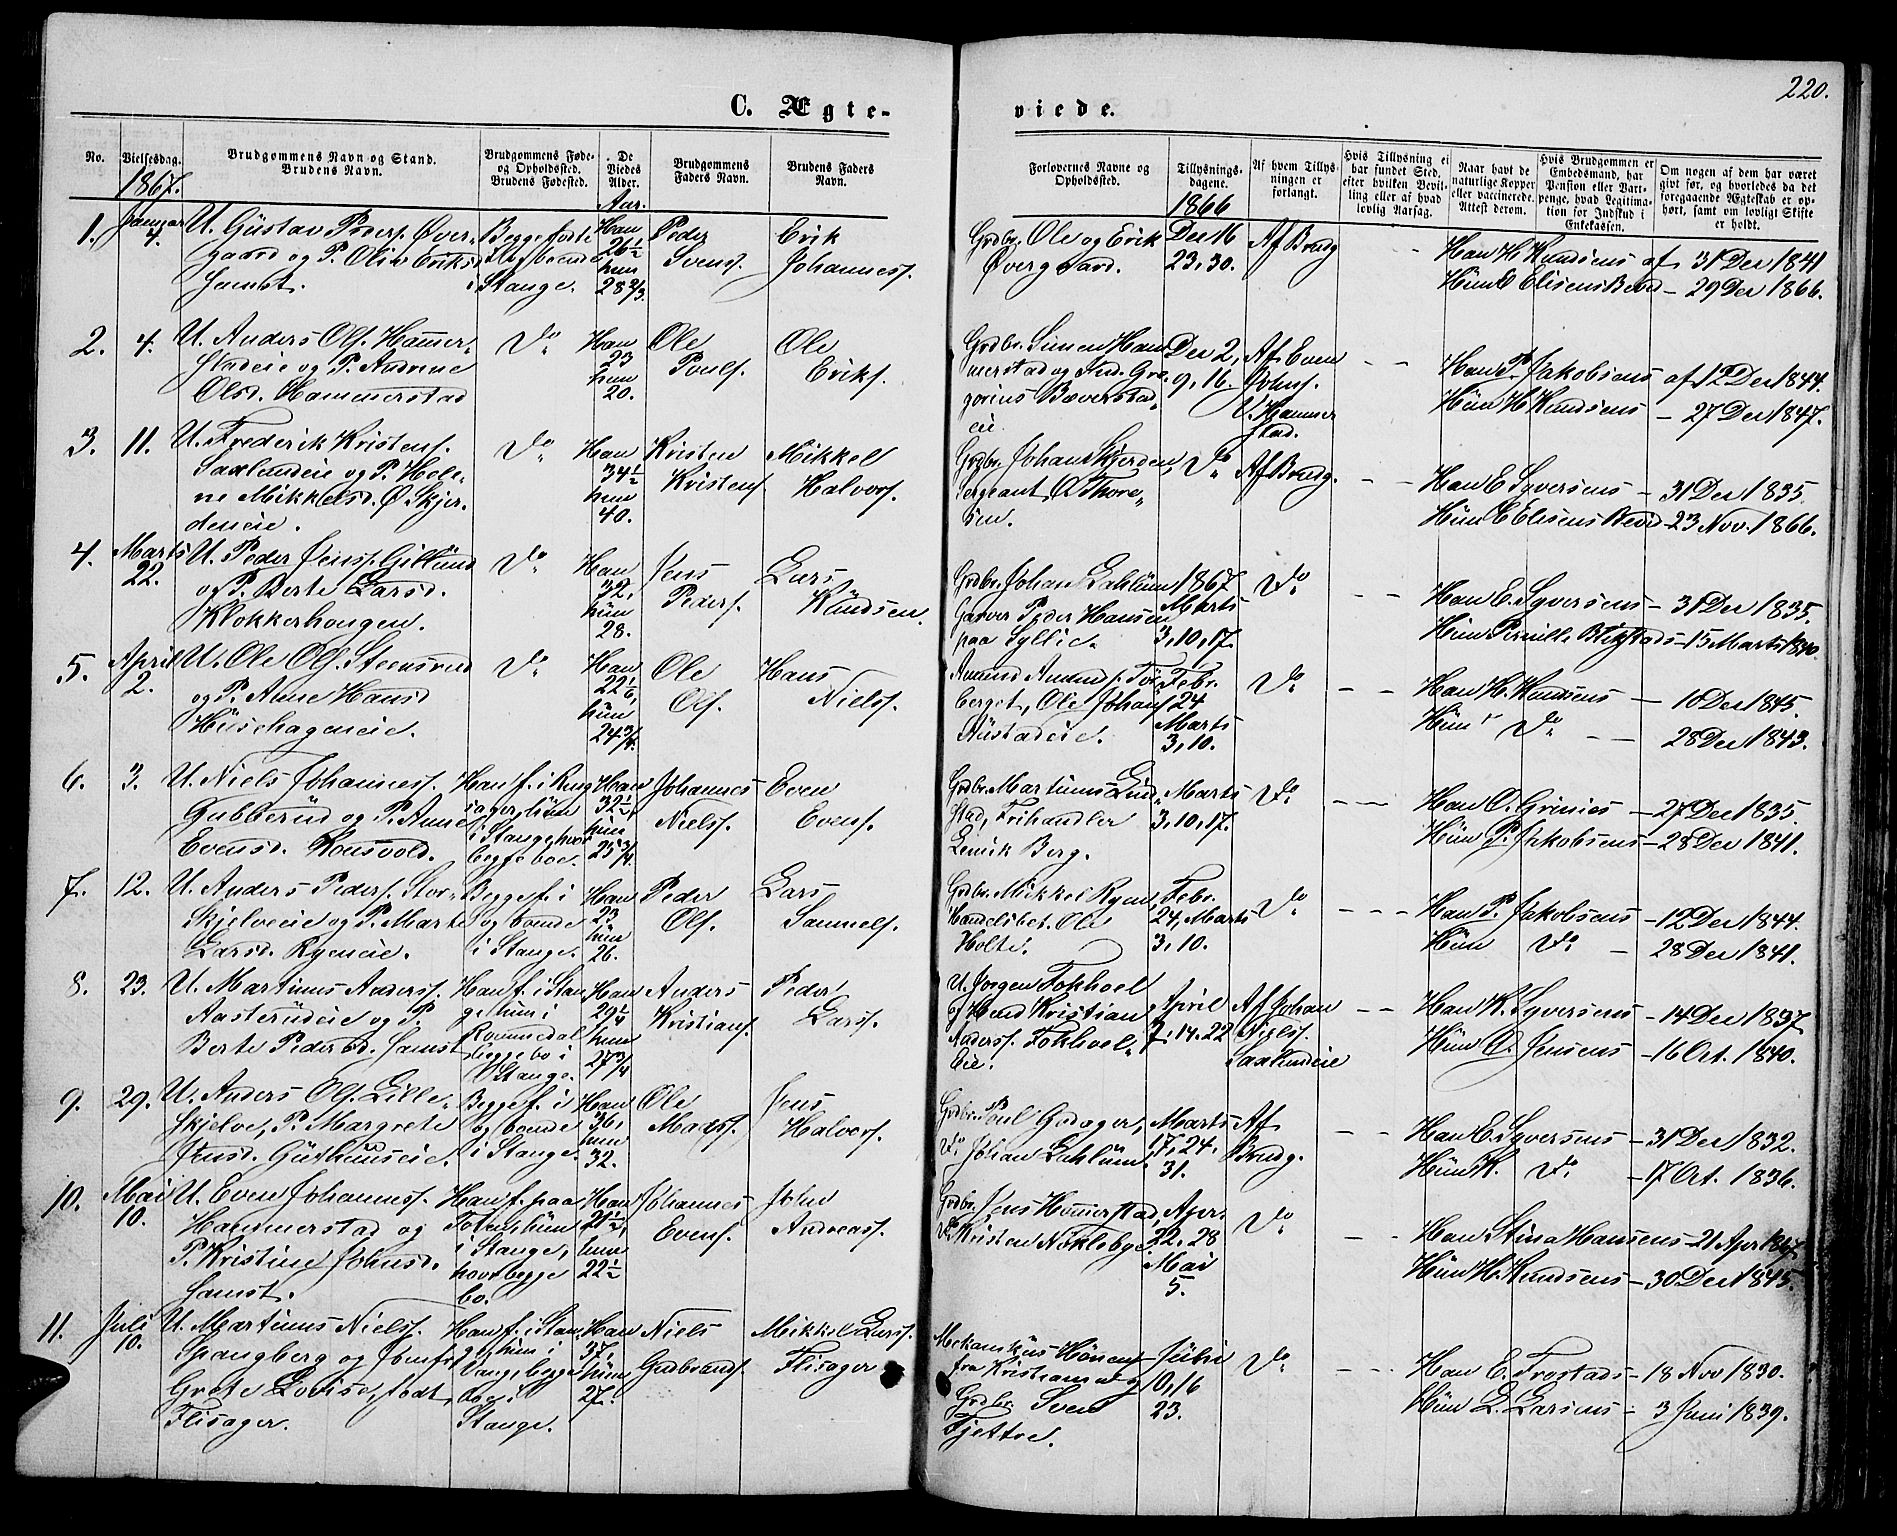 220.
C. Ægte-
viede.
No.
Vielsesdag.
Brudgommens Navn og Stand.
Brudens Navn.
Brudgommens Føde-
og Opholdssted.
Brudens Fødested.
De
Viedes
Alder.
Brudgommens
Faders Navn.
Brudens Faders
Navn.
Forlovernes Navne og
Opholdssted.
Tillysnings-
dagene.
Af hvem Tillys-
ningen er
forlangt.
Hvis Tillysning ei
har fundet Sted,
efter hvilken Bevil-
ling eller af hvad
lovlig Aarsag.
Naar havt de
naturlige Kopper
eller vaccinerede.
Attest derom.
Hvis Brudgommen er
Embedsmand, har
Pension eller Vart-
penge, hvad Legitima-
tion for Indskud i
Enkekassen.
Om nogen af dem har været
gift før, og hvorledes da det
foregaaende Ægteskab er op-
hørt, samt om lovligt Skifte
er holdt.
1867.
Aar.
1866
1.
Januar
4.
U. Gustav Peders. Øver-
gaard og P. Olive Eriksd
Samst.
Begge fødte
og boende
i Stange.
Han
26½
hun
28⅔.
Peder
Svens.
Erik
Johanness.
Grdbr. Ole og Erik
Øvergaard.
Dec 16
23, 30.
Af Brudg
Han H. Knudsens af 31 Dec 1841
Hun E Elisens Bevid – 29 Dec 1866.
2.
4.
U. Anders Ols. Hammer-
stadeie og P. Andrine
Olsd. Hammerstad
Do
Han
23
hun
20.
Ole
Pouls.
Ole
Eriks.
Grdbr. Simen Ham
merstad og And. Gre
gorius Bæverstad-
eie.
Dec 2,
9, 16.
Af Even
Johns.
V. Hammer
stad.
Han P. Jakobsens af 12 Dec 1844.
Hun H. Knudsens – 27 Dec 1847.
3.
11.
U. Frederik Kristens.
Saxlundeie og P. Hele-
ne Mikkelsd. Ø. Skjer-
deneie.
Do
Han
34½
hun
40.
Kristen
Kristens.
Mikkel
Halvors.
Grdbr. Johan Skjerden,
Sergeant O Thore-
sen.
Do
Af Brudg.
Han E. Syversens – 31 Dec 1835.
Hun E Elisens Bevid – 23 Nov. 1866.
4.
Marts
22.
U. Peder Jenss. Gillund
og P. Berte Larsd.
Klokkerhougen.
Do
Han
32,
hun
28.
Jens
Peders.
Lars
Knudsen.
Grdbr. Johan Lahlum
Garver Peder Hansen
paa Tyllie.
1867.
Marts
3, 10, 17.
Do
Han E. Syversens – 31 Dec 1835.
Hun Pernille Blystads – 15 Marts 1840.
5.
April
2.
U. Ole Ols. Steensrud
og P. Anne Hansd
Huschageneie.
Do
Han
22⅙,
hun
24¾.
Ole
Ols.
Hans
Niels.
Amund Amunds. Tor-
berget, Ole Johans
Austadeie.
Febr.
24
Marts
3, 10.
Do
Han H. Knudsens – 10 Dec 1845.
Hun Do – 28 Dec 1843.
6.
3.
U. Niels Johanness.
Gubberud og P. Anne
Evensd. Konsvold.
Han f. i Ring
sager, hun
i Stange hvor
begge boe.
Han
32½,
hun
25¾.
Johannes
Nielss.
Even
Evens.
Grdbr. Martinus Lind-
stad, Frihandler
Lenvik Berg.
Marts
3, 10, 17.
Do
Han O. Grinies – 27 Dec 1835.
Hun P. Jakobsens – 28 Dec 1841.
7.
12.
U. Anders Peders. Stor-
Skjelveeie og P. Marte
Larsd. Ryeneie.
Begge f. i
og boende
i Stange.
Han
23
hun
26.
Peder
Ols.
Lars
Samuels.
Grdbr. Mikkel Ryen,
Handelsbet. Ole
Holte.
Febr.
24, Marts
3, 10.
Do
Han P. Jakobsens – 12 Dec 1844.
Hun Do – 28 Dec 1841.
8.
23.
U. Martinus Anderss.
Aasterudeie og P
Berte Pedersd. Samst
Han f. i Stan
ge hun i
Romedal
begge bo i
Stange.
Han
29¼
hun
27¾
Anders
Kristians.
Peder
Larss.
U. Jørgen Fokhoel
og Hend Kristian
Anderss. Fokhoel-
eie.
April
7. 14. 22
Af Johan
Nielss.
Saxlundeie
Han K. Syversens – 14 Dec 1837
Hun O. Jensens – 16 Oct. 1840.
9.
29.
U. Anders Ols. Lille-
Skjelve, P. Margrete
Jensd. Guthuuseie.
Begge f. i
og boende
i Stange.
Han
36,
hun
32.
Ole
Madss.
Jens
Halvors.
Grdbr. Poul Godager,
Do Johan Lahlum.
Marts
17, 24.
31.
Af
Brudg.
Han E. Syversens – 31 Dec 1832.
Hun K. Do – 17 Oct. 1836.
10.
Mai
10.
U. Even Johanness.
Hammerstad og
P. Kristine Johnsd.
Samst.
Han f. paa
Toten, hun
i Stange,
hvor begge
bo.
Han
21½,
hun
22½
Johannes
Evens.
John
Andreass.
Grdbr. Jens Hommerstad,
Do Kristen Nøklebye.
Apr.
22, 28
Mai
5.
Do
Han Stina Hansens – 21 Apr 1847.
Hun H. Knudsens – 30 Dec 1845.
11.
Juli
10.
U. Martinus Nielss.
Spangberg og Jomfr.
Grete Lovise, født
Flisager.
Han f. i Stan
ge, hun i
Vang, begge
boe i
Stange.
Han
37,
hun
27.
Niels
Gudbrands.
Mikkel Larss.
Flisager
Mekanikus Hønen
fra Kristiania og
Grdbr. Svend
Tjettoe.
Juni
10, 16
23.
Do
Han E. Frostads – 18 Nov 1830.
Hun L. Larsens – 3 Juni 1839.